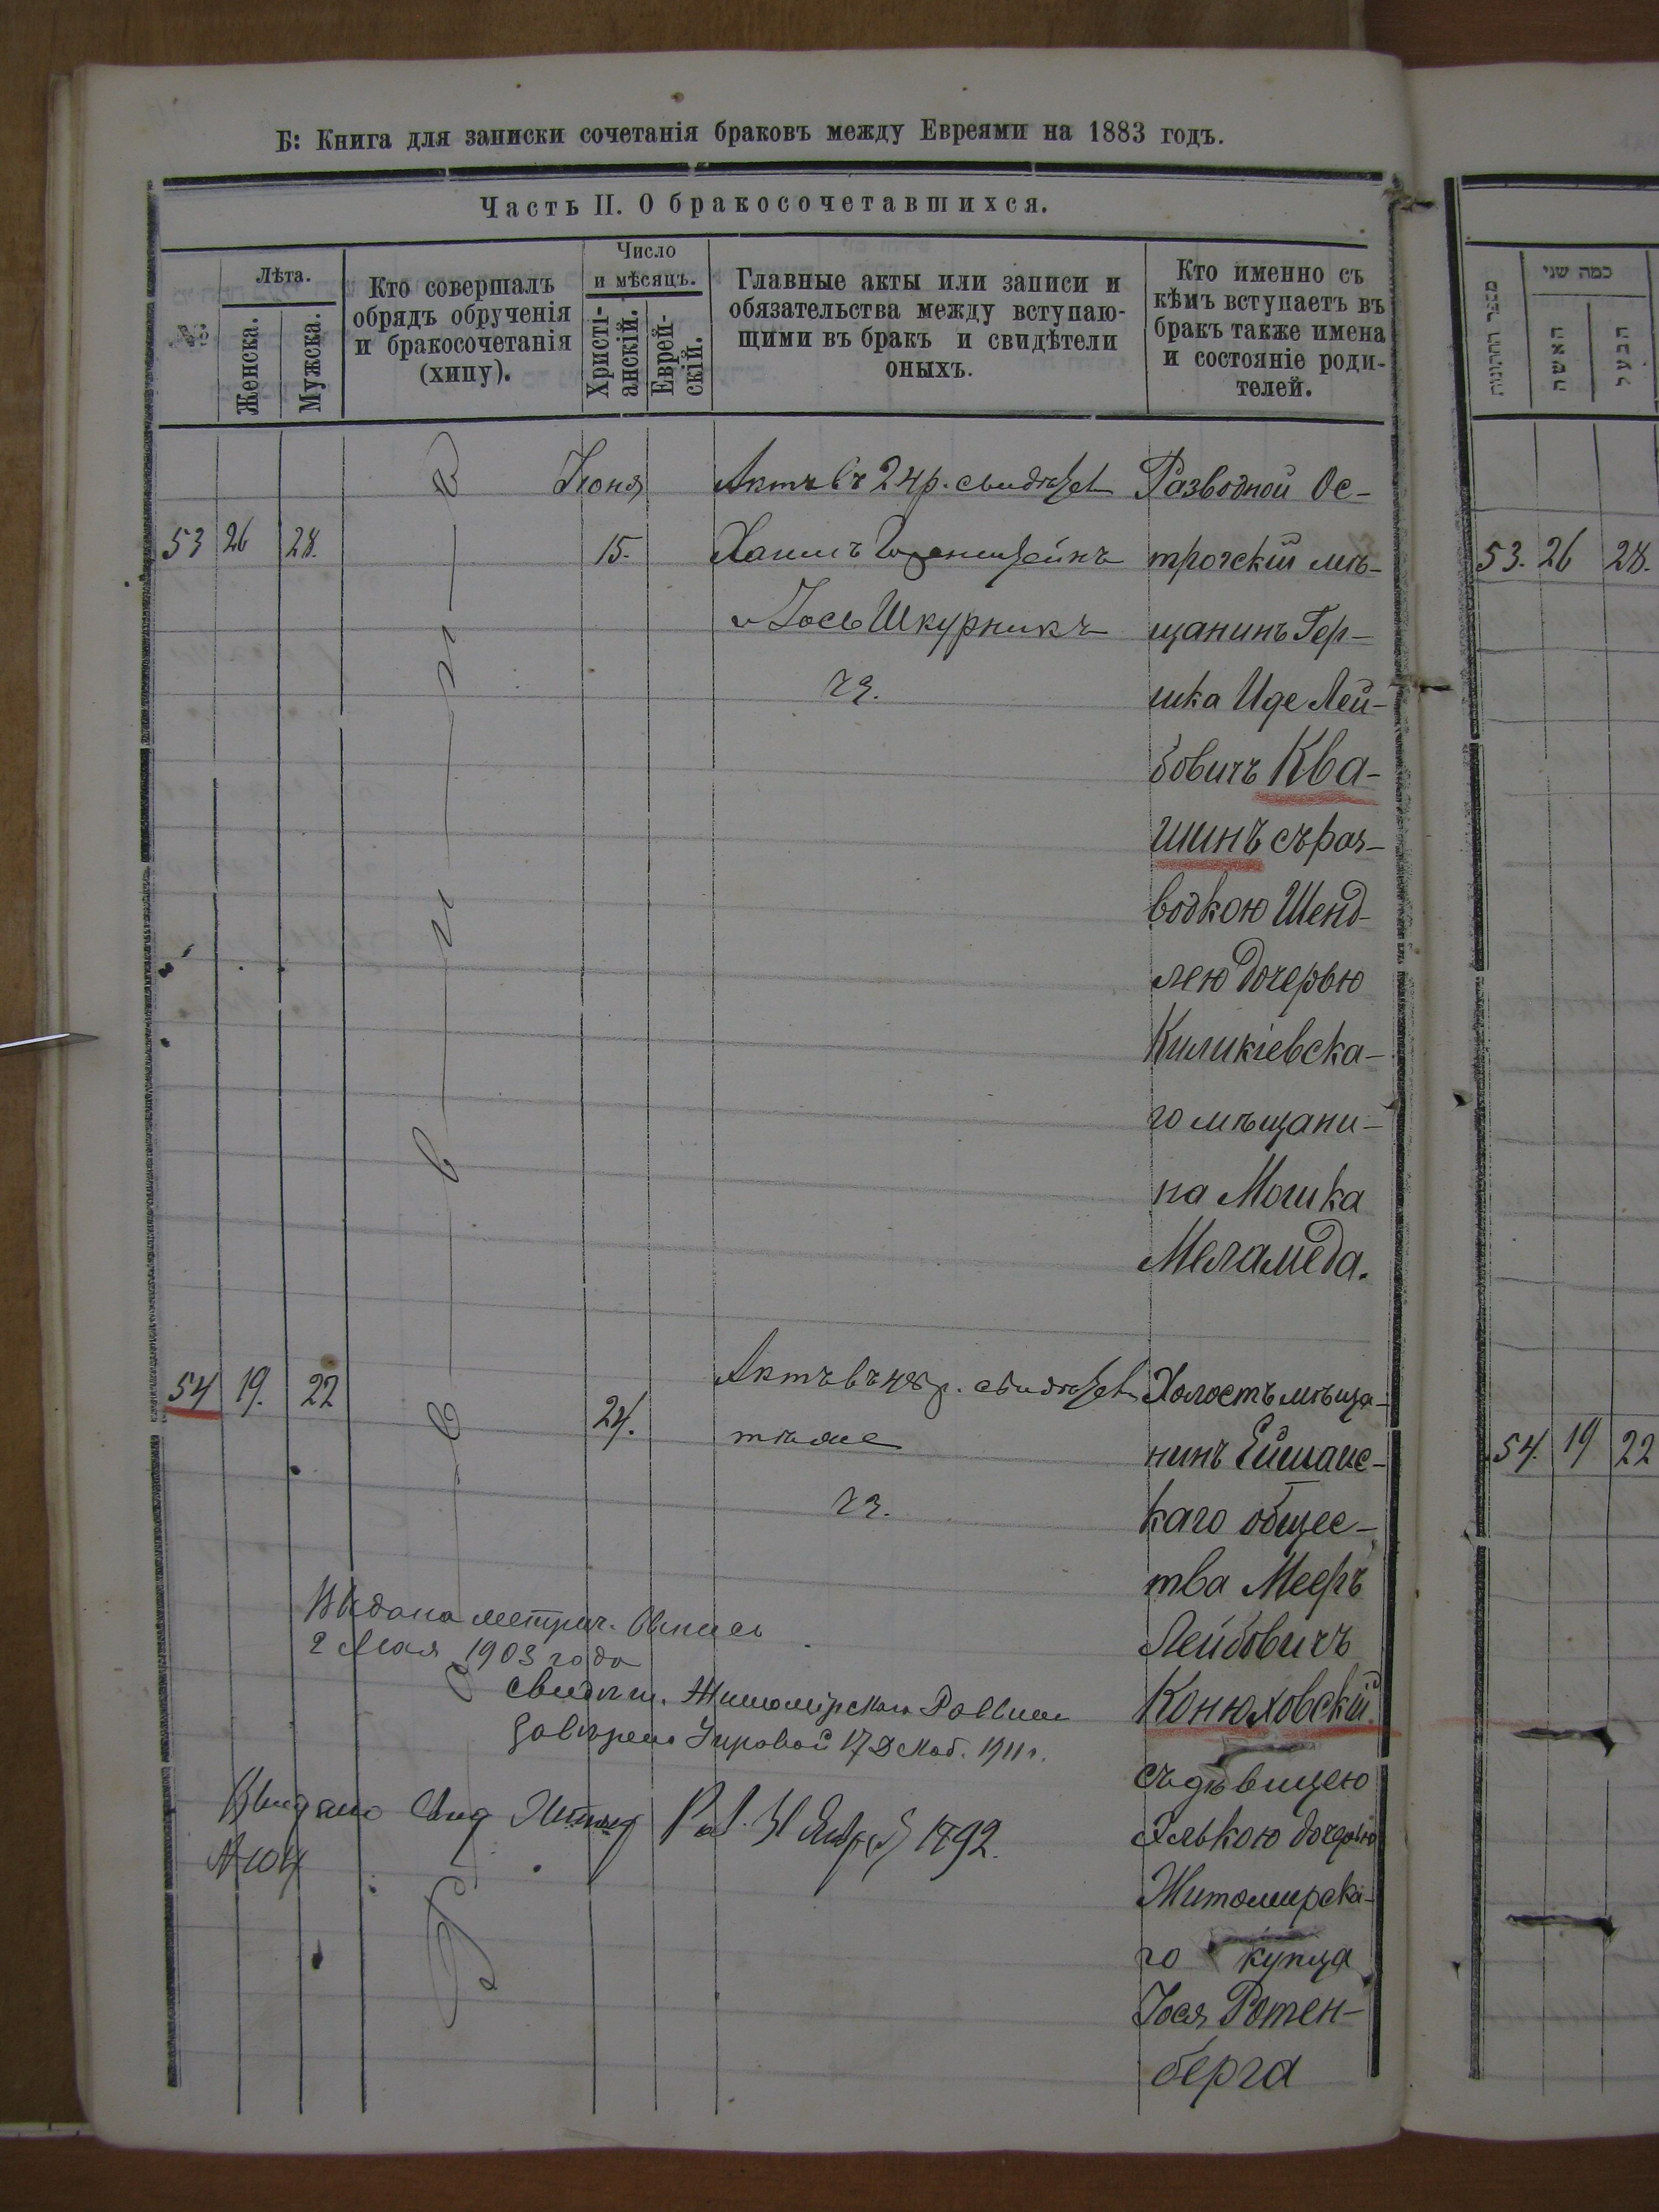 Б: Книга для записки сочетанія браковъ между Евреями на 1883 годъ.
Часть II. О бракосочетавшихся.
№
Лѣта.
Женска.
Мужска.
Кто совершалъ
обрядъ обрученія
и бракосочетанія
(хипу).
Число
и мѣсяцъ.
Христі-
анскій.
Еврей-
скій.
Главные акты или записи и
обязательства между вступаю-
щими въ бракъ и свидѣтели
оныхъ.
Кто именно съ
кѣмъ вступаетъ въ
бракъ также имена
и состояніе роди-
телей.
Іюня
53 26 28. 15.
Актъ въ 24 р. свидѣт
Хаимъ
и Іось Шкурникъ
чз.
Разводной Ос-
трогскій мѣ-
щанинъ Гер-
шка Иде Лей-
бовичъ Ква-
шинъ съ раз-
водкою Шенд-
лею дочерью
Киликіевска-
го мѣщани-
на Мошка
Меламеда.
54 19. 22 24.
Актъ въ 48 р. свидѣт
тѣже
чз.
Холостъ мѣща-
нинъ Ейшанс-
каго общес-
тва Мееръ
Лейбовичъ
Конюховскій
съ дѣвицею
Элькою дочерью
Житомирска-
го купца
Іося Ротен-
берга
Выдана метрич. выпись
2 Мая 1903 года
Свидѣт. Житомірскаго Раввина
17 Дкаб. 1911 г.
Выдано Свид
1892.
№ 104
כמה שני
האשה
הבעל
53. 26 28.
54. 19 22